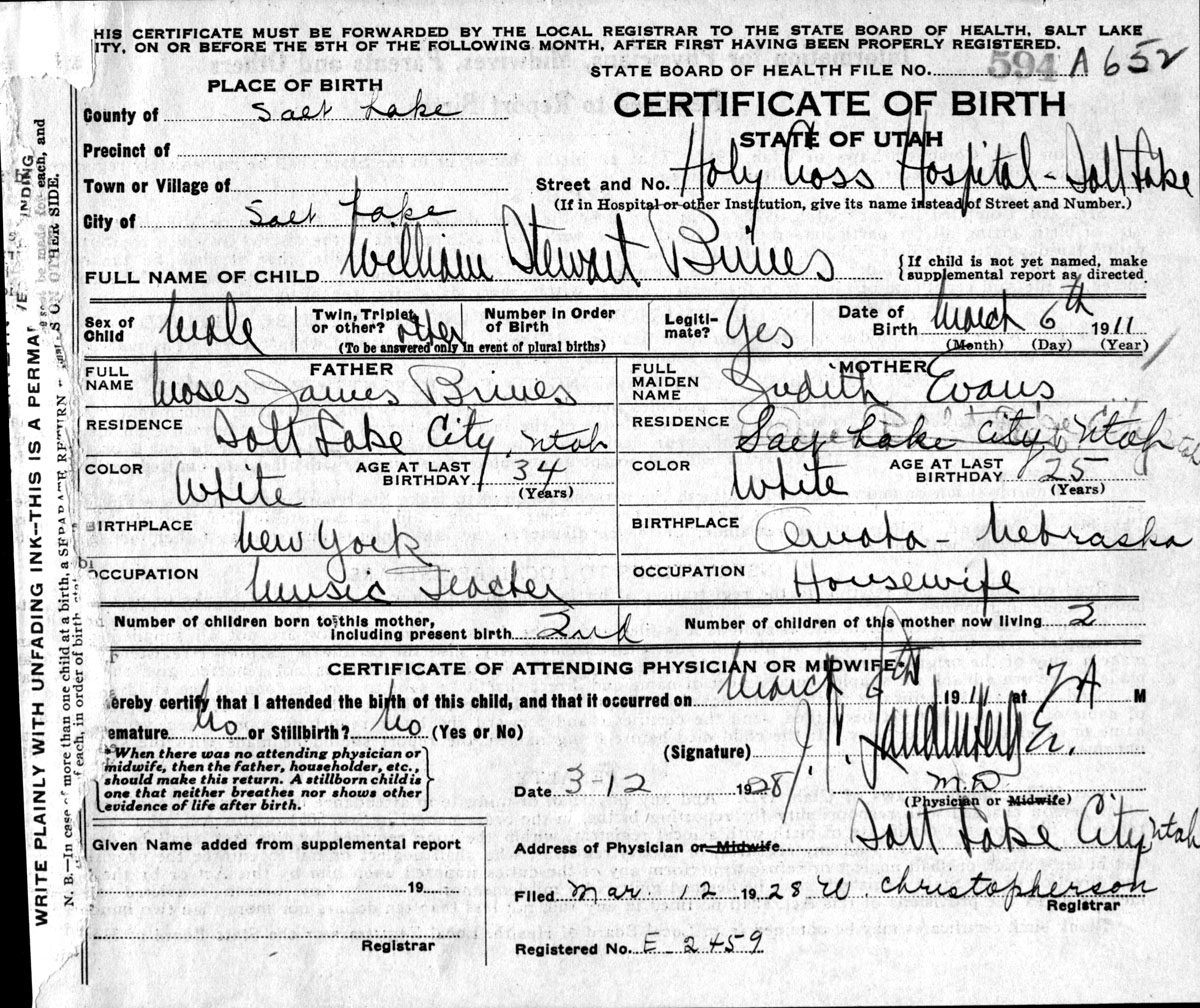 HIS CERTIFICATE MUST BE FORWARDED BY THE LOCAL REGISTRAR TO THE STATE BOARD OF HEALTH, SALT LAKE
ITY, ON OR BEFORE THE 5TH OF THE FOLLOWING MONTH, AFTER FIRST HAVING BEEN PROPERLY REGISTERED.
STATE BOARD OF HEALTH FILE NO. 594 A 652
PLACE OF BIRTH
CERTIFICATE OF BIRTH
STATE OF UTAH
County of Salt Lake
Precinct of
Town or Village of
Street and No. Holy Cross Hospital - Salt Lake
(If in Hospital or other Institution, give its name instead of Street and Number.)
City of Salt Lake
FULL NAME OF CHILD William Stewart Brines
{If child is not yet named, make
supplemental report as directed
Sex of Child Male
Twin, Triplet or other? other
Number in Order of Birth
(To be answered only in event of plural births)
Legiti-mate? Yes
Date of Birth March 6th 1911
(Month) (Day) (Year)
FATHER
FULL NAME Moses James Brines
RESIDENCE Salt Lake City, Utah
COLOR White
AGE AT LAST BIRTHDAY 34
(Years)
BIRTHPLACE New York
OCCUPATION Music Teacher
MOTHER
FULL MAIDEN NAME Judith Evans
RESIDENCE Salt Lake City, Utah
COLOR White
AGE AT LAST BIRTHDAY 25
(Years)
BIRTHPLACE Omaha - Nebraska
OCCUPATION Housewife
Number of children born to this mother, including present birth 2nd
Number of children of this mother now living 2
CERTIFICATE OF ATTENDING PHYSICIAN OR MIDWIFE*
ereby certify that I attended the birth of this child, and that it occurred on March 6th 1911 at 7 A M
emature No or Stillbirth? No (Yes or No)
*When there was no attending physician or
midwife, then the father, householder, etc.,
should make this return. A stillborn child is
one that neither breathes nor shows other
evidence of life after birth.
(Signature)
Date 3-12 1928
M.D.
(Physician or Midwife)
Given Name added from supplemental report
19
Registrar
Address of Physician or Midwife Salt Lake City, Utah
Filed Mar. 12 1928 W. Christopherson
Registrar
Registered No. E-2459
WRITE PLAINLY WITH UNFADING INK--THIS IS A PERMA
N. B.--In case of more than one child at a birth, a SEPARATE RETURN
be made for each, and
of each, in order of birth
S ON OTHER SIDE.